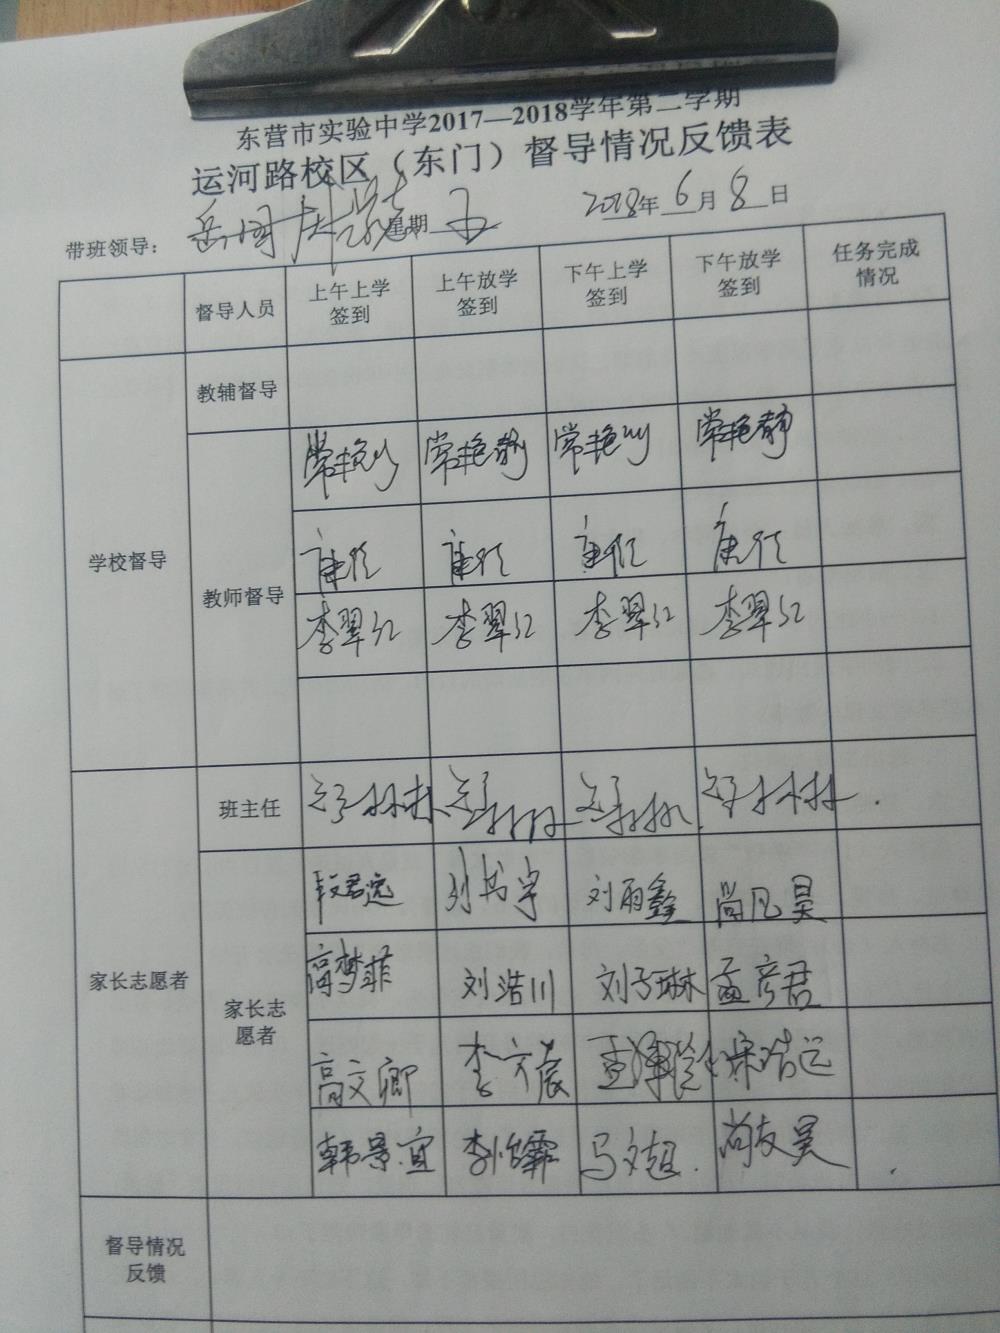 东营市实验中学2017—2018学年第二学期
运河路校区（东门）督导情况反馈表
带班领导： 星期 五 2018年 6 月 8 日
督导人员 上午上学签到 上午放学签到 下午上学签到 下午放学签到 任务完成情况
学校督导
教辅督导
教师督导
常艳静 常艳静 常艳静 常艳静
李翠红 李翠红 李翠红 李翠红
家长志愿者
班主任
家长志愿者
段君逸 刘书宇 刘雨鑫 尚凡昊
高梦菲 刘浩川 刘子琳 孟彦君
高文卿 李文宸
韩景宜 李怡霏 马文超 尚友昊
督导情况反馈